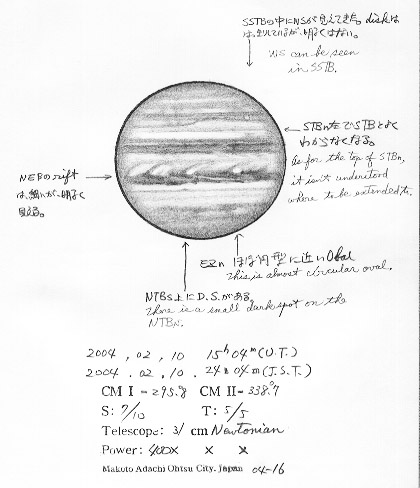 SSTBの中にNSが見えてきた。diskは
は、出ているが、明るくはない。
NS can be seen
in SSTB.
STBn左でSTBとよく
わからなくなる。
As for the top of STBn,
it isn't understood
where to be extended to.
NEBのrift
は、細いが、明るく
見える。
EZn ほぼ円型に近いOval
This is almost circular oval.
NTBs上にD.S.がある。
There is a small dark spot on the
NTBN.
2004 , 02 , 10 15h 04m (U.T.)
2004 . 02 , 10 . 24h 04m (J.S.T.)
CM I = 295.°8 CM II = 338.°7
S: 7/10 T: 5/5
Telescope: 31 cm Newtonian
Power: 400x x x
Makoto Adachi Ohtsu City. Japan 04-16